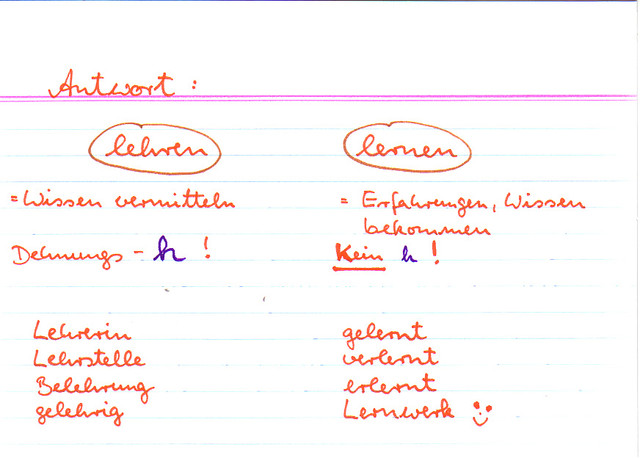 Antwort :
lehren lernen
= Wissen vermitteln = Erfahrungen, Wissen
bekommen
Dehnungs-h ! Kein h !
Lehrerin gelernt
Lehrstelle verlernt
Belehrung erlernt
gelehrig Lernwerk